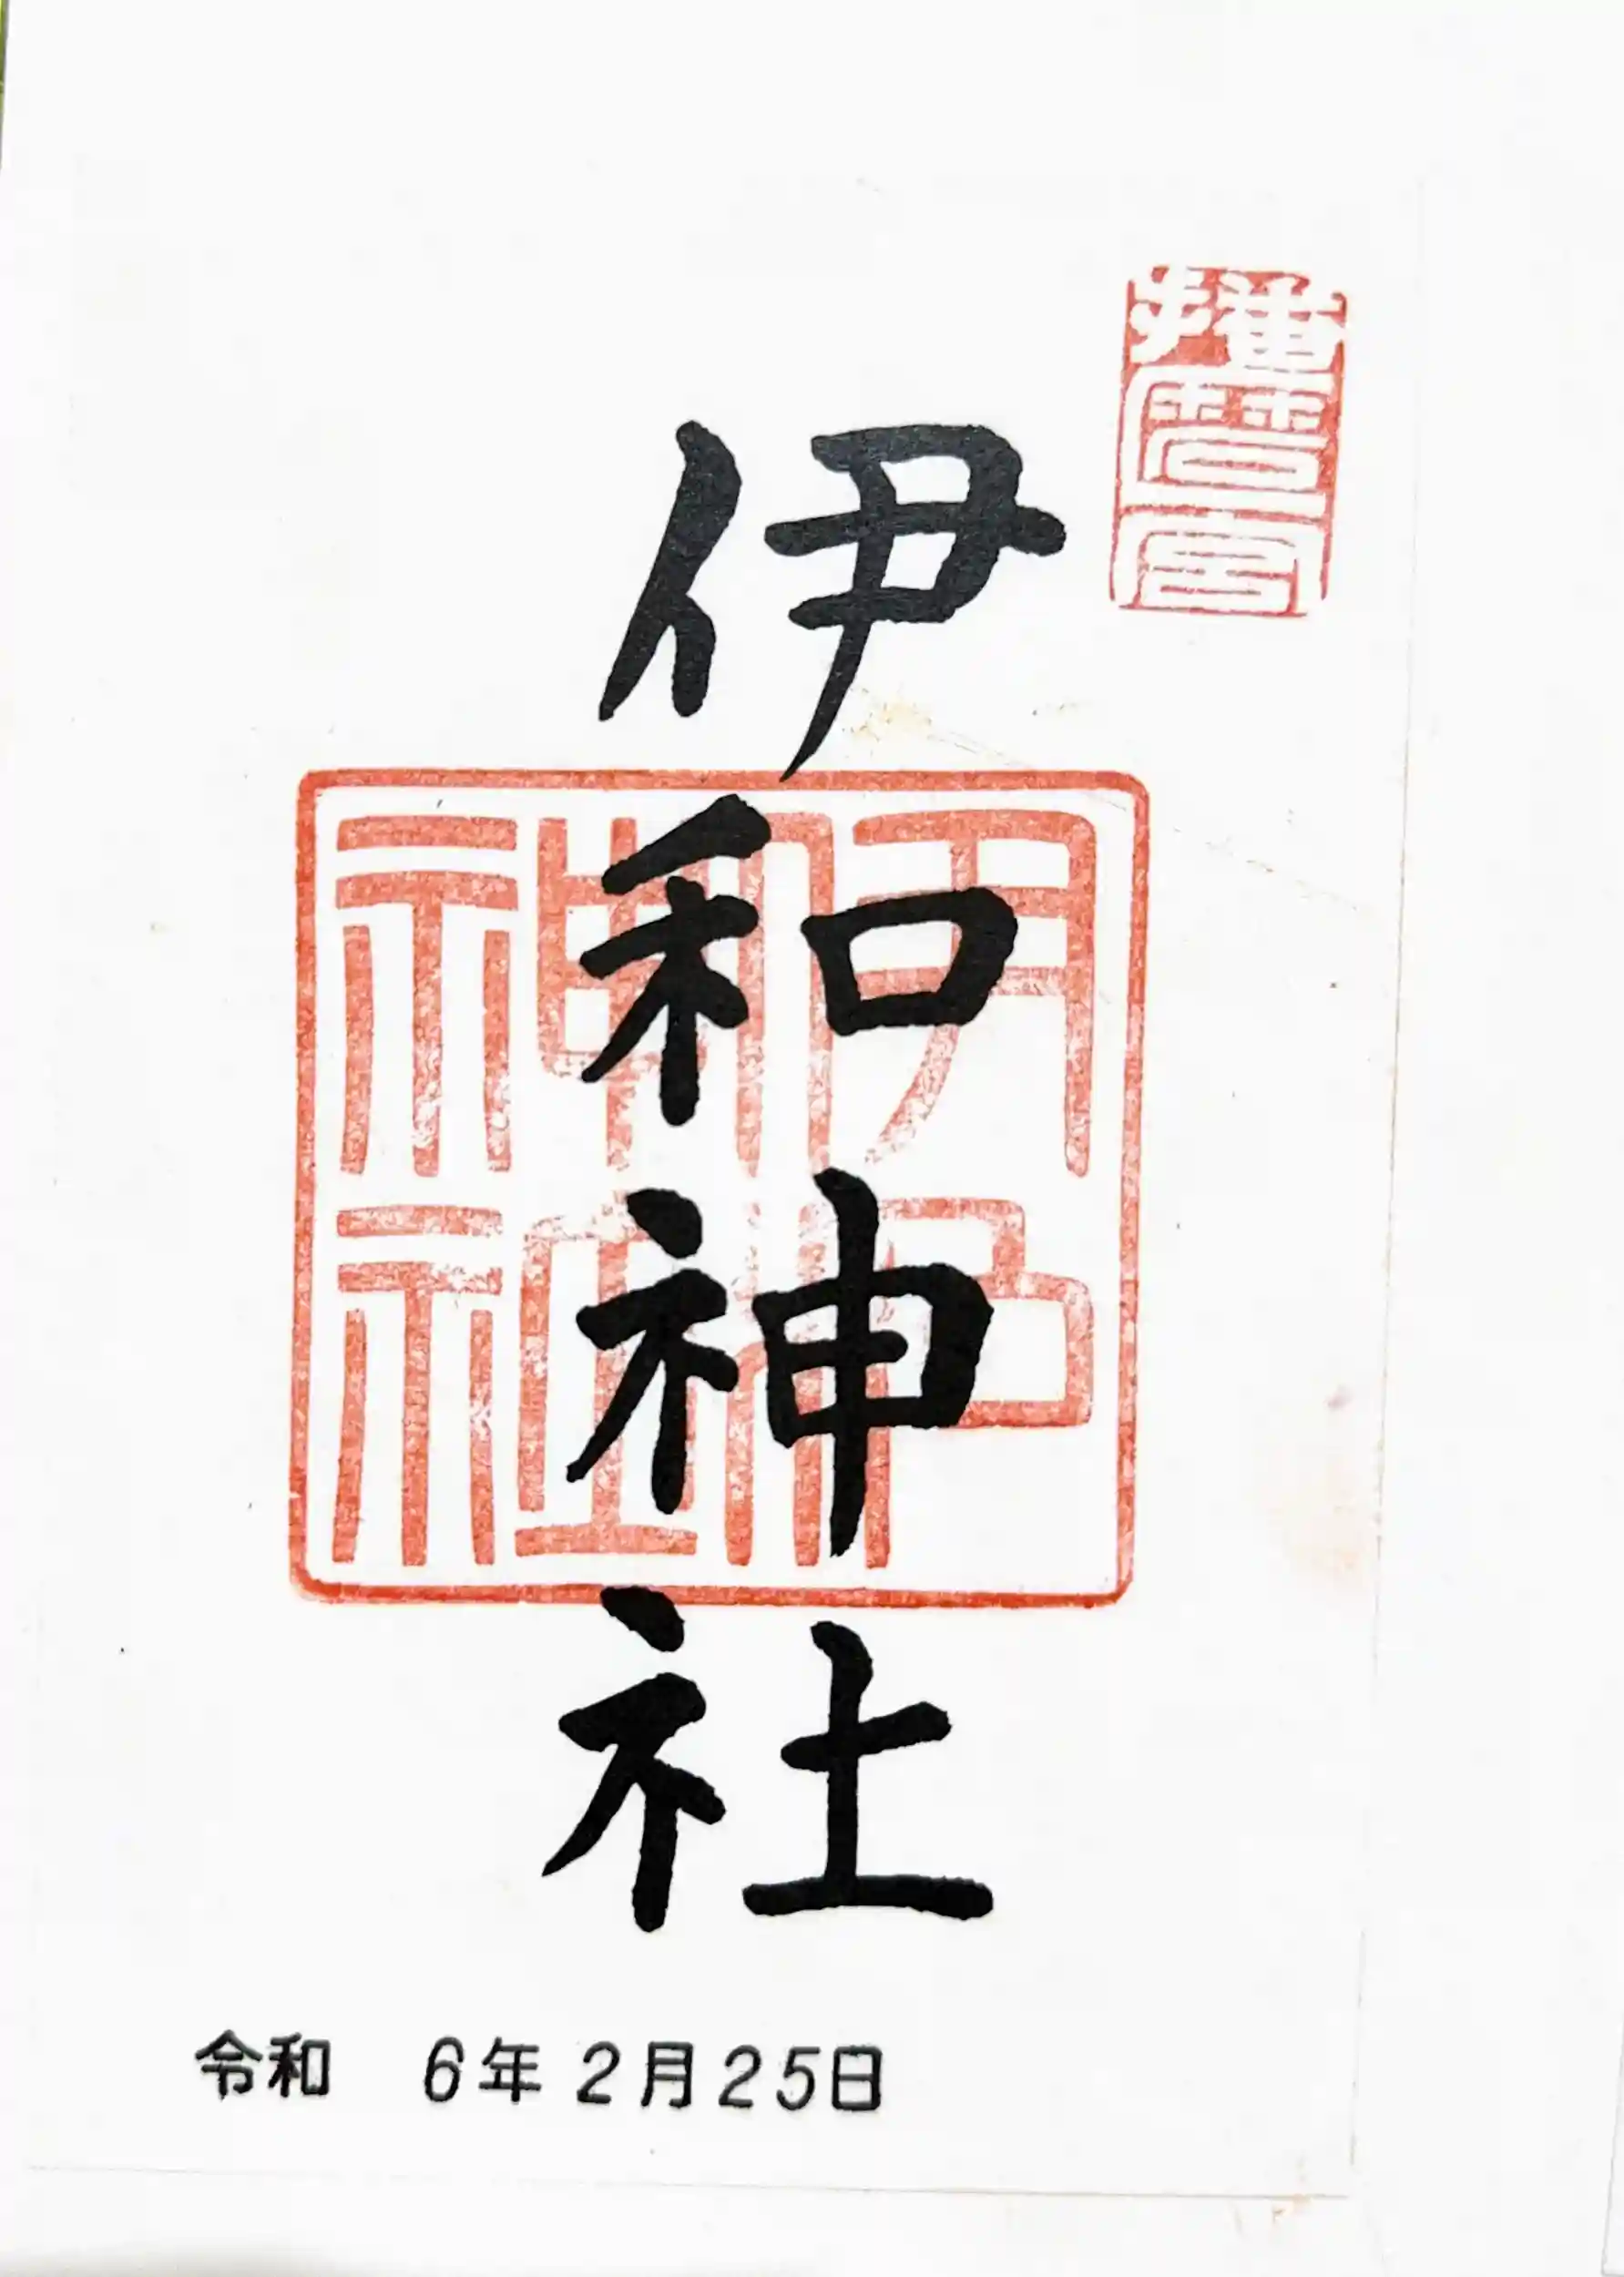 播磨一宮
伊和神社
伊和神社
令和 6年2月25日